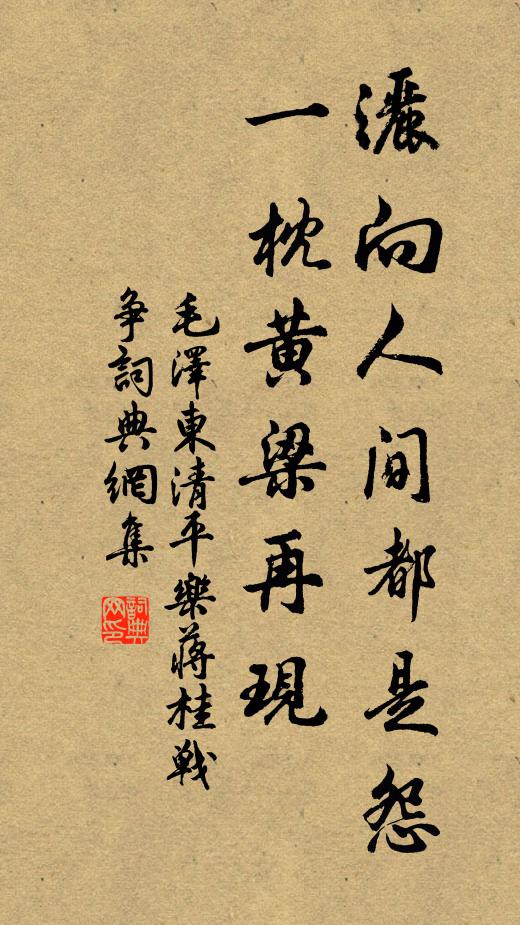 灑向人間都是怨
一枕黄粱再現
毛澤東清平樂蔣桂戰
争詞典網集
詞典
网印